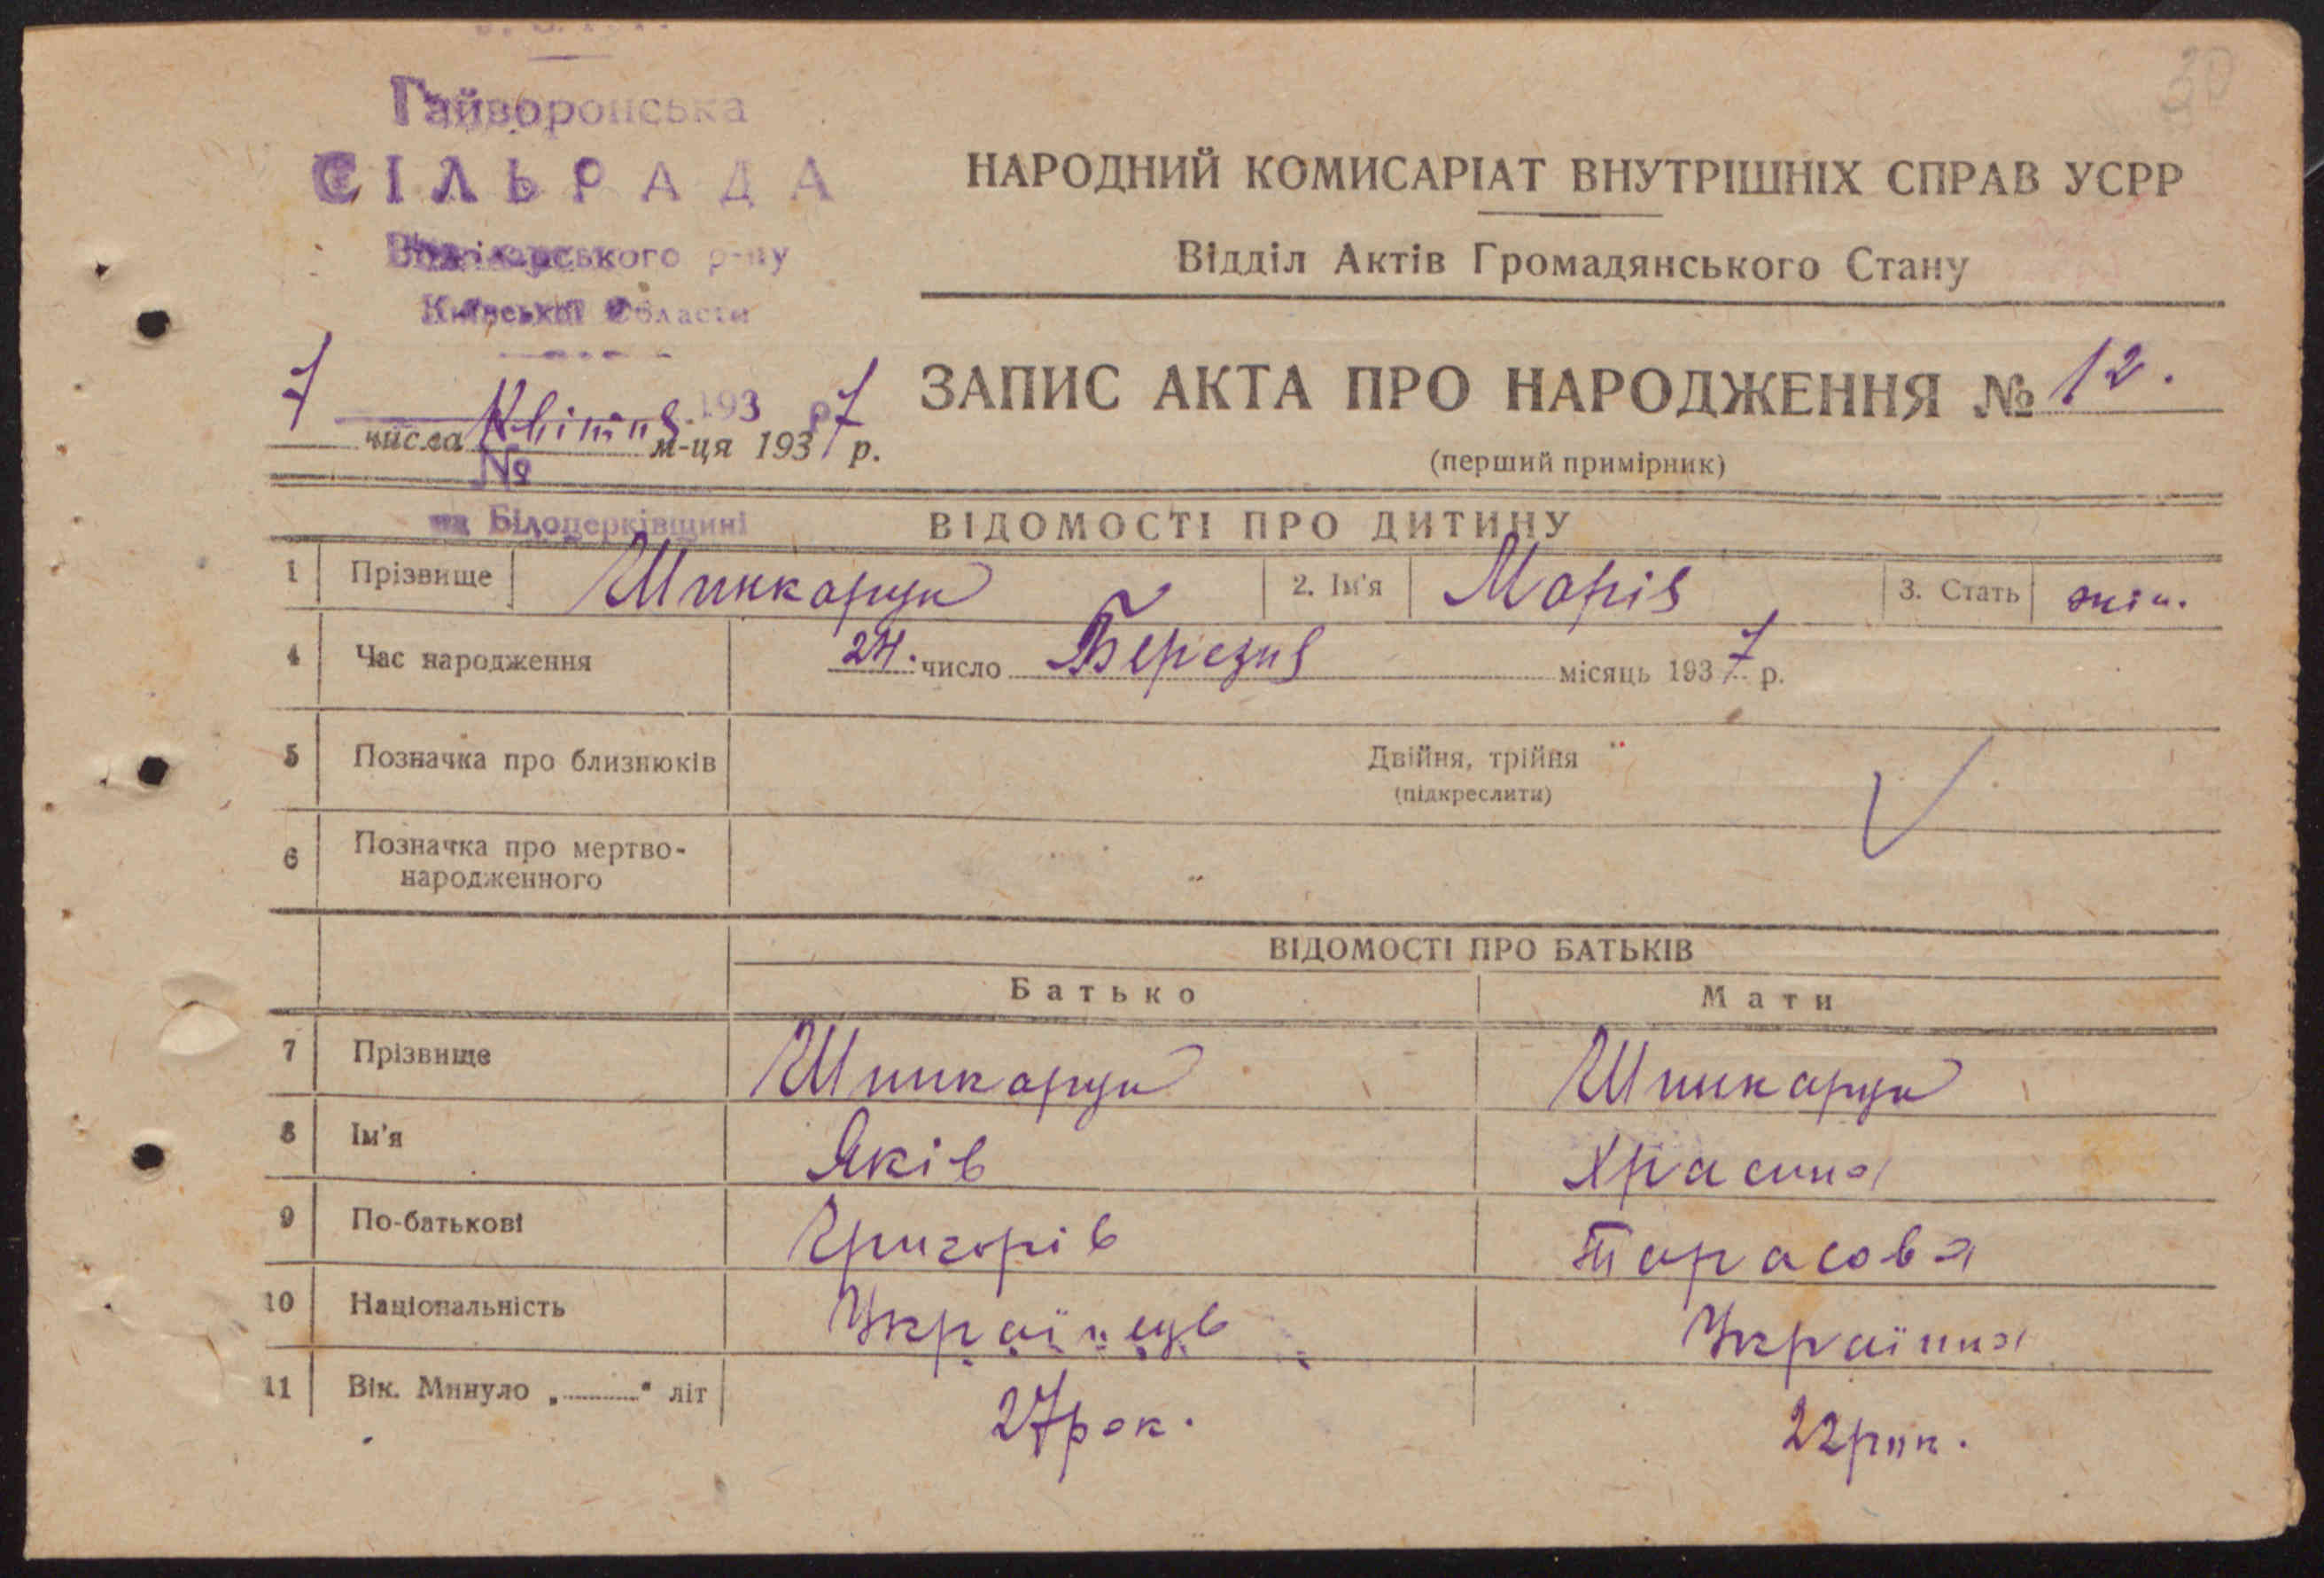 30
Гайворонська
СІЛЬРАДА
р-ну
Київської Области
НАРОДНИЙ КОМИСАРІАТ ВНУТРІШНІХ СПРАВ УСРР
Відділ Актів Громадянського Стану
ЗАПИС АКТА ПРО НАРОДЖЕННЯ № 12.
(перший примірник)
193 р.
7 числа Квітня м-ця 1937 р.
№
на Білоцерківщині
ВІДОМОСТІ ПРО ДИТИНУ
1 Прізвище Шинкарук 2. Ім'я Марія 3. Стать жін.
4 Час народження 24. число Березня місяць 1937 р.
5 Позначка про близнюків Двійня, трійня
(підкреслити)
6 Позначка про мертво-
народженного
ВІДОМОСТІ ПРО БАТЬКІВ
Батько Мати
7 Прізвище Шинкарук Шинкарук
8 Ім'я Яків
9 По-батькові Григорів Тарасова
10 Національність Українець Українка
11 Вік. Минуло „ “ літ 27 рок. 22 рок.